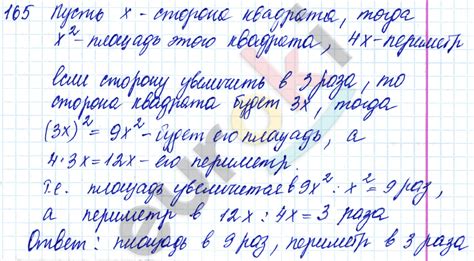 165 Пусть x - сторона квадрата, тогда
x² - площадь этого квадрата, 4x - периметр
если сторону увеличить в 3 раза, то
сторона квадрата будет 3x, тогда
(3x)² = 9x² - будет его площадь, а
4·3x = 12x - его периметр.
т.е. площадь увеличится в 9x² : x² = 9 раз,
а периметр в 12x : 4x = 3 раза
Ответ: площадь в 9 раз, периметр в 3 раза
euroki